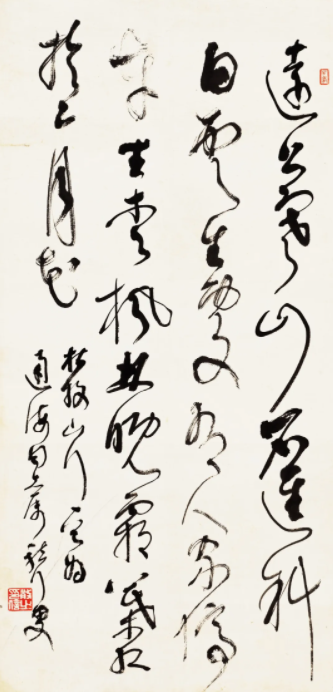 遠上寒山石逕斜
白雲生處有人家停
車坐愛楓林晚霜葉紅
於二月花
杜牧山行
通海同志屬